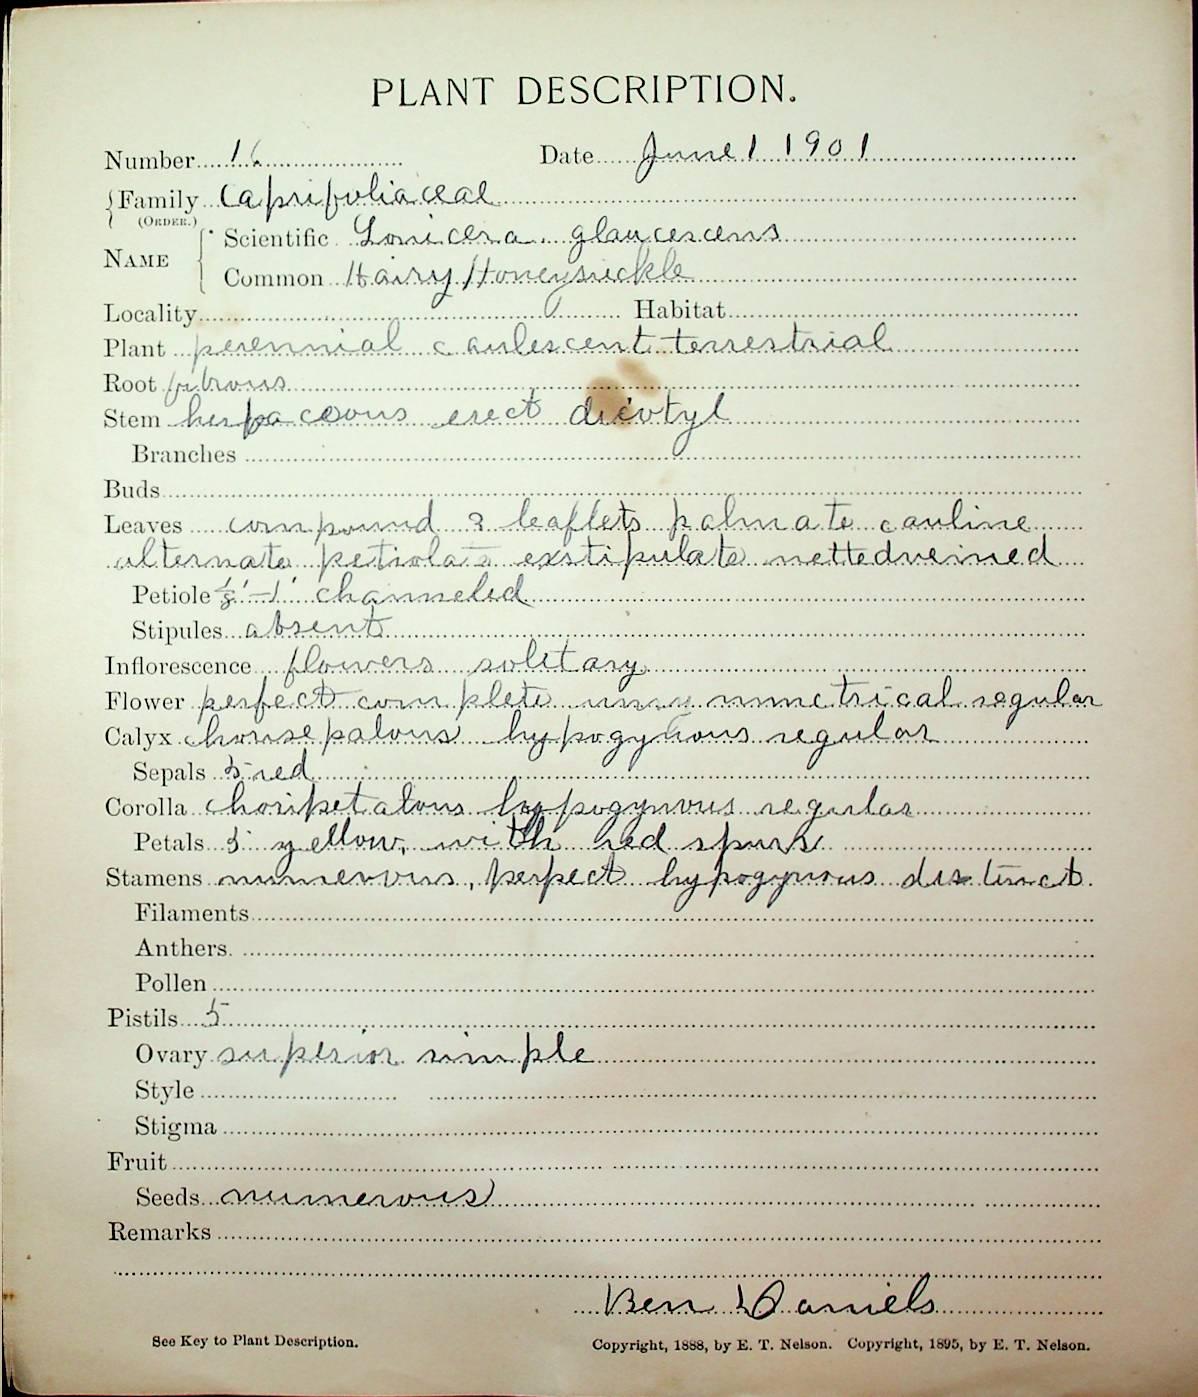 PLANT DESCRIPTION.
Number 16 Date June 1 1901
{Family Caprifoliaceae
(ORDER.)
Scientific Lonicera glaucescens
NAME
Common Hairy Honeysuckle
Locality Habitat
Plant perennial caulescent terrestrial
Root fibrous
Stem herbaceous erect dicotyl
Branches
Buds
Leaves compound 3 leaflets palmate cauline
alternate petiolate exstipulate nettedveined
Petiole ⅛'-1' channeled
Stipules absent
Inflorescence flowers solitary
Flower perfect complete unsymmetrical regular
Calyx chorisepalous hypogynous regular
Sepals 5 red
Corolla choripetalous hypogynous regular
Petals 5 yellow, with red spurs
Stamens numerous, perfect hypogynous distinct.
Filaments
Anthers.
Pollen
Pistils 5
Ovary superior simple
Style
Stigma
Fruit
Seeds numerous
Remarks
Ben Daniels
See Key to Plant Description. Copyright, 1888, by E. T. Nelson. Copyright, 1895, by E. T. Nelson.